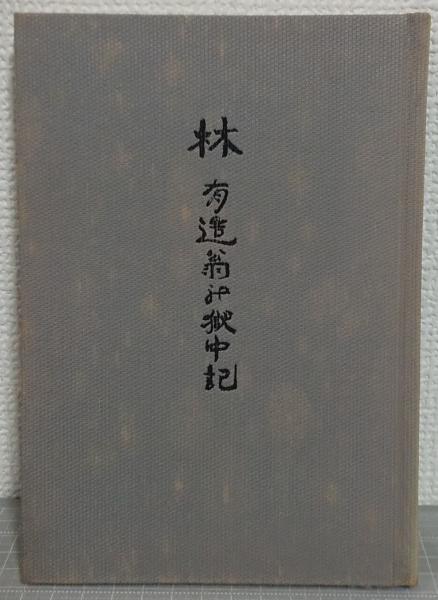 林有造翁の獄中記